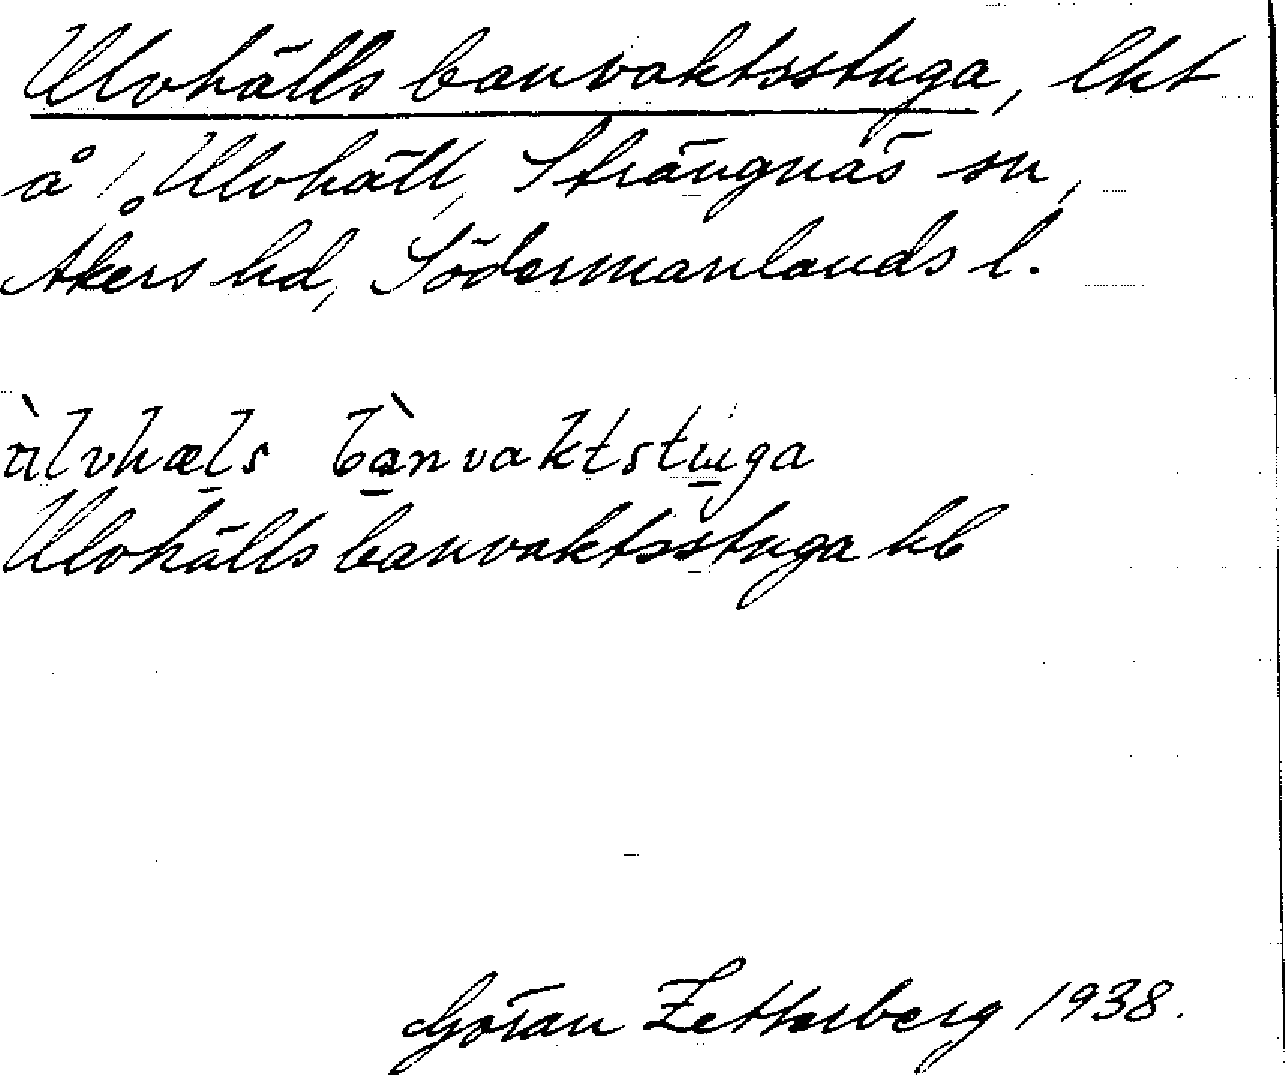 Ulvhälls banvaktsstuga, lht
å 1 Ulvhäll, Strängnäs sn,
Åkers hd, Södermanlands l.
ùlvhæls bànvaktstuga
Ulvhälls banvaktsstuga hb
Göran Zetterberg 1938.